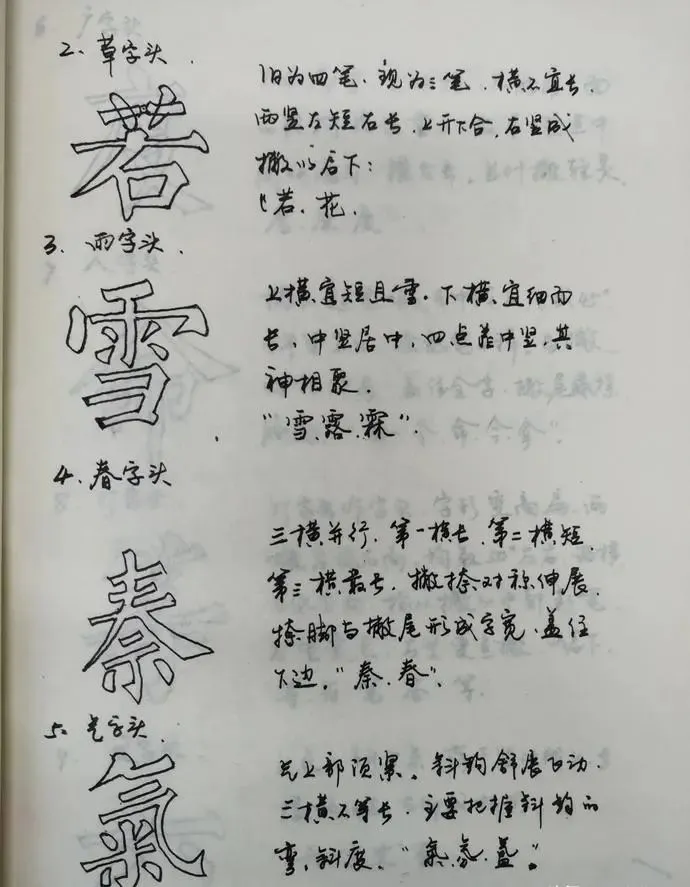 2、草字头.
若
旧为四笔、现为三笔.横不宜长.
两竖左短右长,上开下合,右竖成
撇
若、花.
3、雨字头.
雪
上横宜短且重.下横宜细而
长,中竖居中,四点靠中竖,其
神相聚.
"雪.露.霖".
4、春字头
秦
三横并行,第一横长.第二横短.
第三横最长,撇捺对称伸展.
捺脚与撇尾形成字宽.盖住
下边,"秦.春".
5、气字头.
氣
上部顶紧.斜钩舒展飞动.
三横不等长.主要把握斜钩的
弯,斜度."氣.氛.